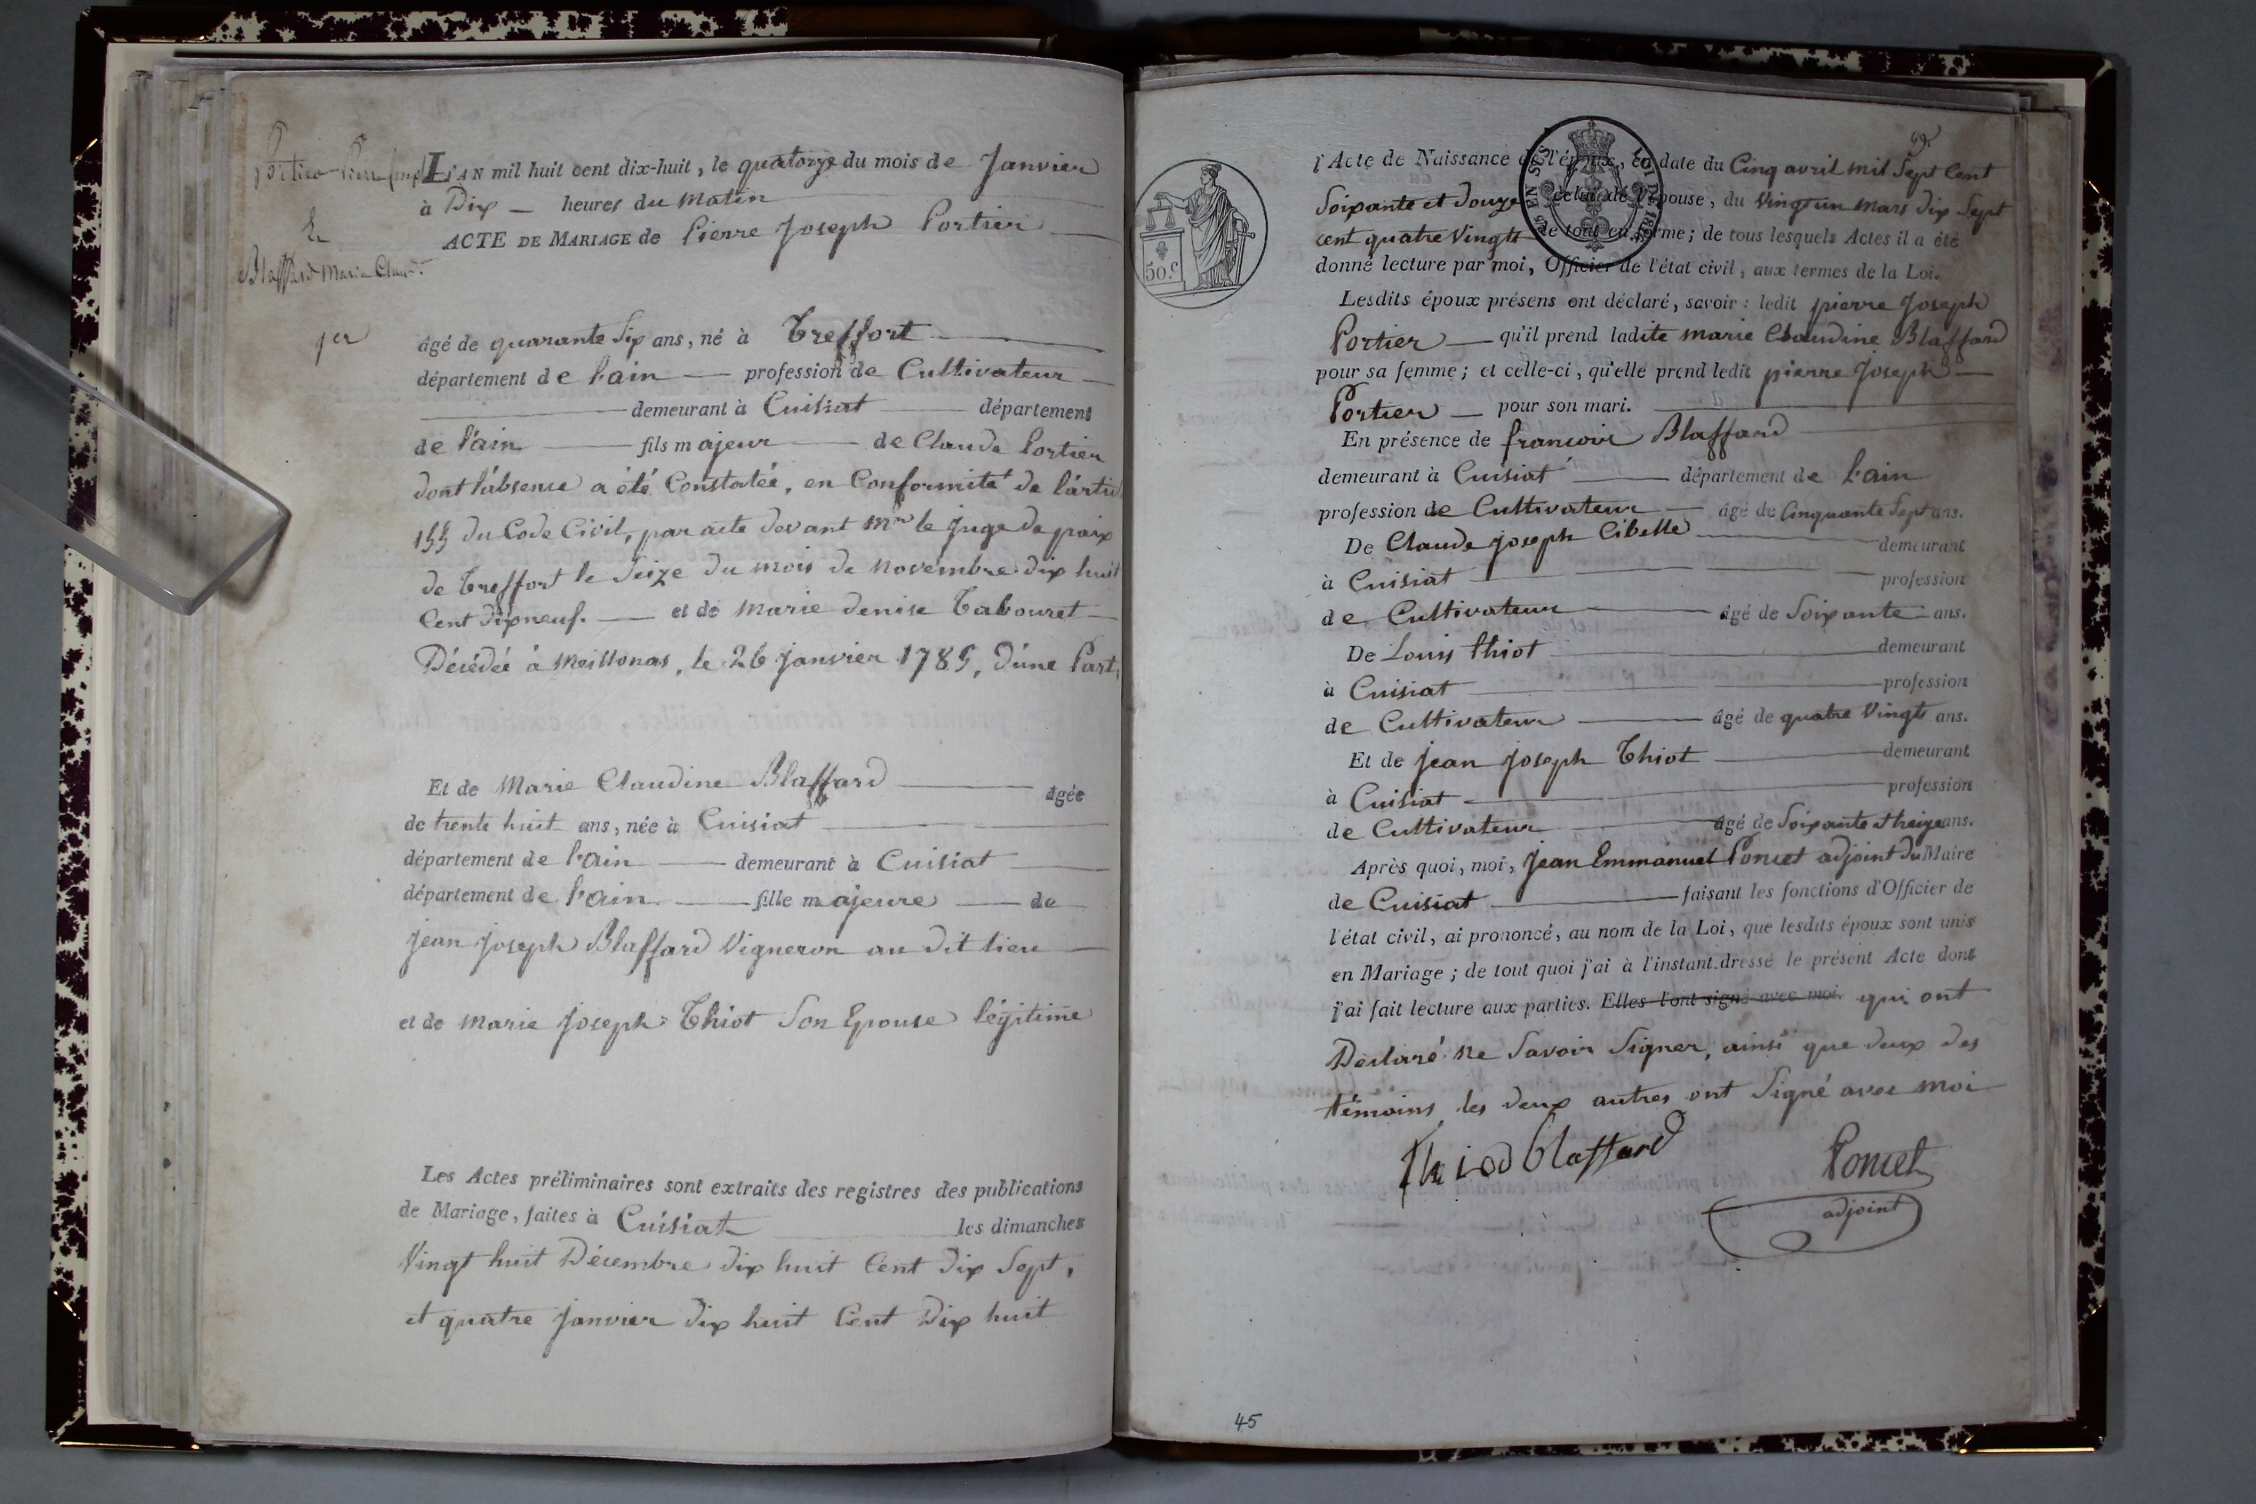 Portier Pierre Joseph
&
Blaffard Marie Claud.
1er
L'AN mil huit cent dix-huit, le quatorze du mois de Janvier
à Dix — heures du matin
ACTE DE MARIAGE de Pierre Joseph Portier
âgé de quarante Six ans, né à Treffort
département de l'ain — profession de Cultivateur
demeurant à Cuisiat département
de l'ain — fils majeur — de Claude Portier
dont l'absence a été Constatée, en Conformité de l'artic
155 du Code Civil, par acte devant Mr le Juge de paix
de Treffort le Seize du mois de novembre dix huit
Cent dixneuf. — et de marie denise Tabouret
Décédée à Meillonas, le 26 janvier 1785, d'une Part,
Et de Marie Claudine Blaffard âgée
de trente huit ans, née à Cuisiat
département de l'ain — demeurant à Cuisiat
département de l'ain — fille majeure — de
jean joseph Blaffard Vigneron au dit lieu
et de marie joseph Thiot Son Epouse légitime
Les Actes préliminaires sont extraits des registres des publications
de Mariage, faites à Cuisiat les dimanches
Vingt huit Décembre dix huit Cent dix Sept,
et quatre janvier dix huit Cent Dix huit
50 c
EN SUS
LOI DE 1816
l'Acte de Naissance de l'époux, en date du Cinq avril mil Sept Cent
Soixante et douze celui de l'épouse, du Vingt un mars dix Sept
cent quatre Vingts de tout en forme; de tous lesquels Actes il a été
donné lecture par moi, Officier de l'état civil, aux termes de la Loi.
Lesdits époux présens ont déclaré, savoir: ledit pierre Joseph
Portier — qu'il prend ladite marie Claudine Blaffard
pour sa femme; et celle-ci, qu'elle prend ledit pierre Joseph
Portier — pour son mari.
En présence de francois Blaffard
demeurant à Cuisiat — département de l'ain
profession de Cultivateur — âgé de Cinquante Sept ans.
De Claude joseph Cibelle demeurant
à Cuisiat profession
de Cultivateur âgé de Soixante ans.
De Louis thiot demeurant
à Cuisiat profession
de Cultivateur âgé de quatre Vingts ans.
Et de jean joseph Thiot demeurant
à Cuisiat profession
de Cultivateur âgé de Soixante & treize ans.
Après quoi, moi, jean Emmanuel Poncet adjoint du Maire
de Cuisiat faisant les fonctions d'Officier de
l'état civil, ai prononcé, au nom de la Loi, que lesdits époux sont unis
en Mariage; de tout quoi j'ai à l'instant dressé le présent Acte dont
j'ai fait lecture aux parties. Elles l'ont signé avec moi. qui ont
Déclaré ne Savoir Signer, ainsi que deux des
témoins, les deux autres ont Signé avec moi
Thiod Blaffard
Poncet
adjoint
45